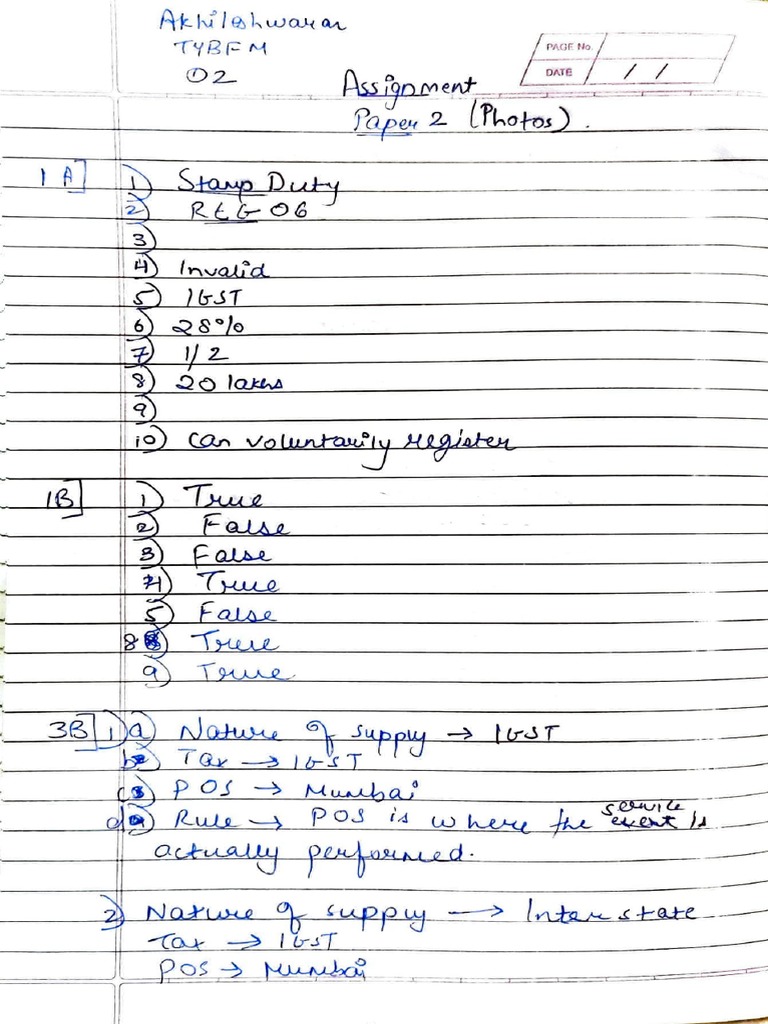 Akhileshwaran
TYBFM
02
PAGE No.
DATE / /
Assignment
Paper 2 (Photos).
1 A] 1) Stamp Duty
2) REG 06
3)
4) Invalid
5) IGST
6) 28%
7) 1/2
8) 20 lakhs
9)
10) Can voluntarily register
1B] 1) True
2) False
3) False
4) True
5) False
8) True
9) True
3B] 1) a) Nature of supply → IGST
b) Tax → IGST
c) POS → Mumbai
d) Rule → POS is where the service event is
actually performed.
2) Nature of supply → Inter state
Tax → IGST
POS → Mumbai